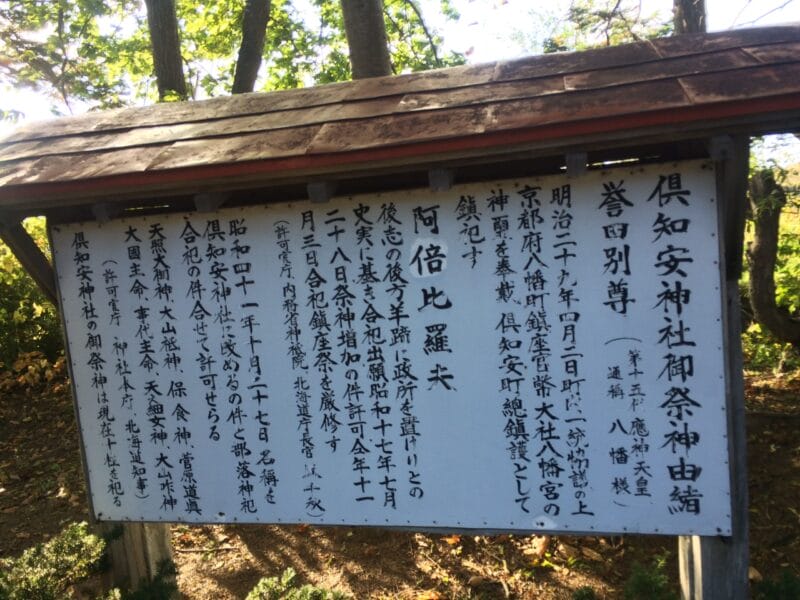 倶知安神社御祭神由緒
誉田別尊
（第十五代 應神天皇
通稱 八幡様）
明治二十九年四月二日町民一統協議の上
京都府八幡町鎮座官幣大社八幡宮の
神璽を奉戴、倶知安町總鎮護として
鎮祀す
阿倍比羅夫
後志の後方羊蹄に政所を置けりとの
史実に基き合祀出願昭和十七年七月
二十八日祭神増加の件許可仝年十一
月三日合祀鎮座祭を厳修す
（許可官庁、内務省神祗院、北海道庁長官
昭和四十一年十月二十七日名稱を
倶知安神社に改めるの件と部落神祀
合祀の件合せて許可せらる
天照大御神、大山祗神、保食神、菅原道真
大國主命、事代主命、天細女神、大山咋神
（許可官庁 神社本庁、北海道知事）
倶知安神社の御祭神は現在十柱を祀る